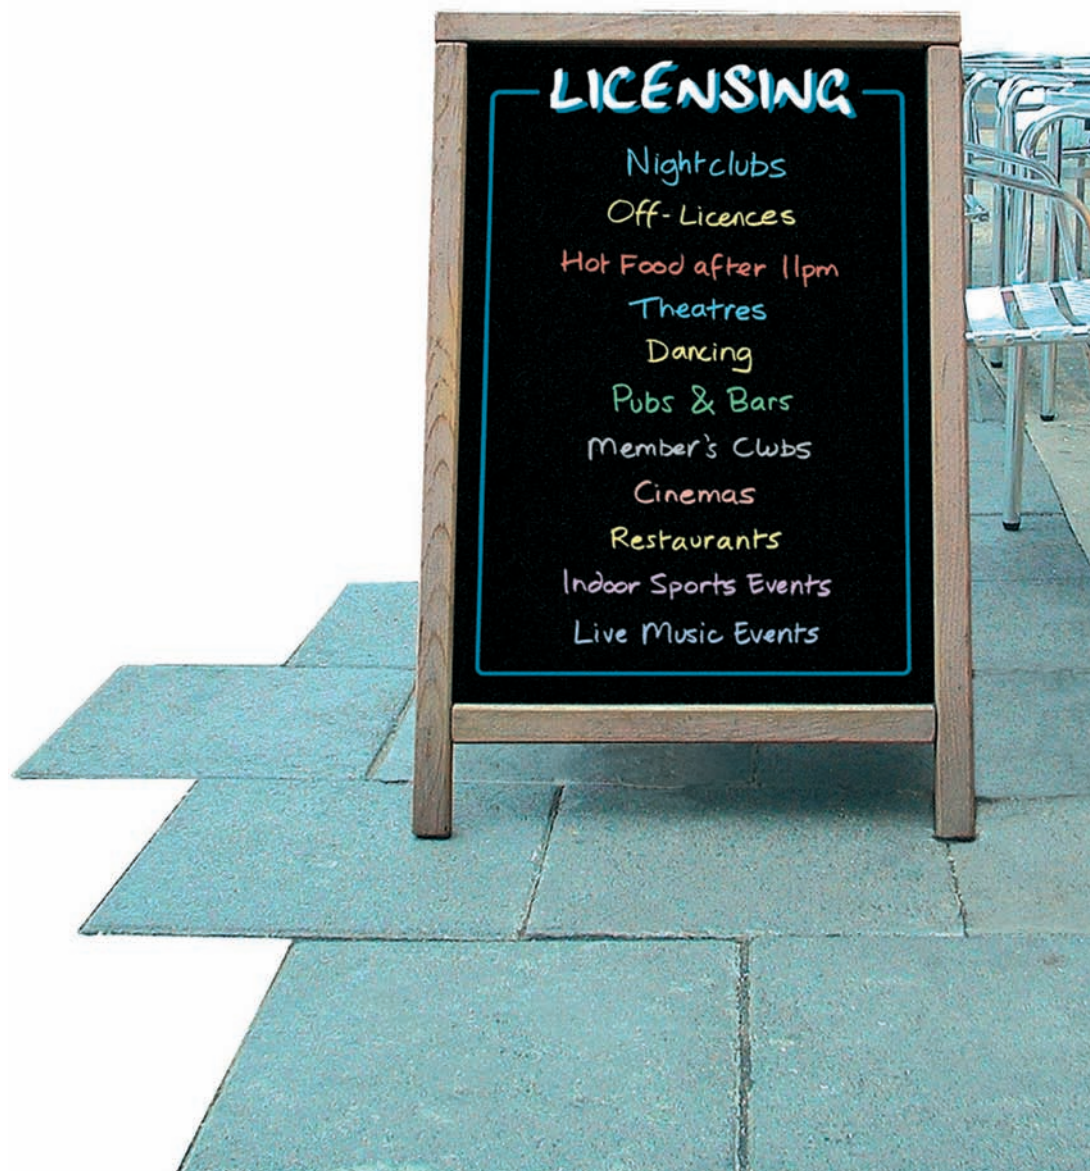 LICENSING
Nightclubs
Off-Licences
Hot Food after 11pm
Theatres
Dancing
Pubs & Bars
Member's Clubs
Cinemas
Restaurants
Indoor Sports Events
Live Music Events